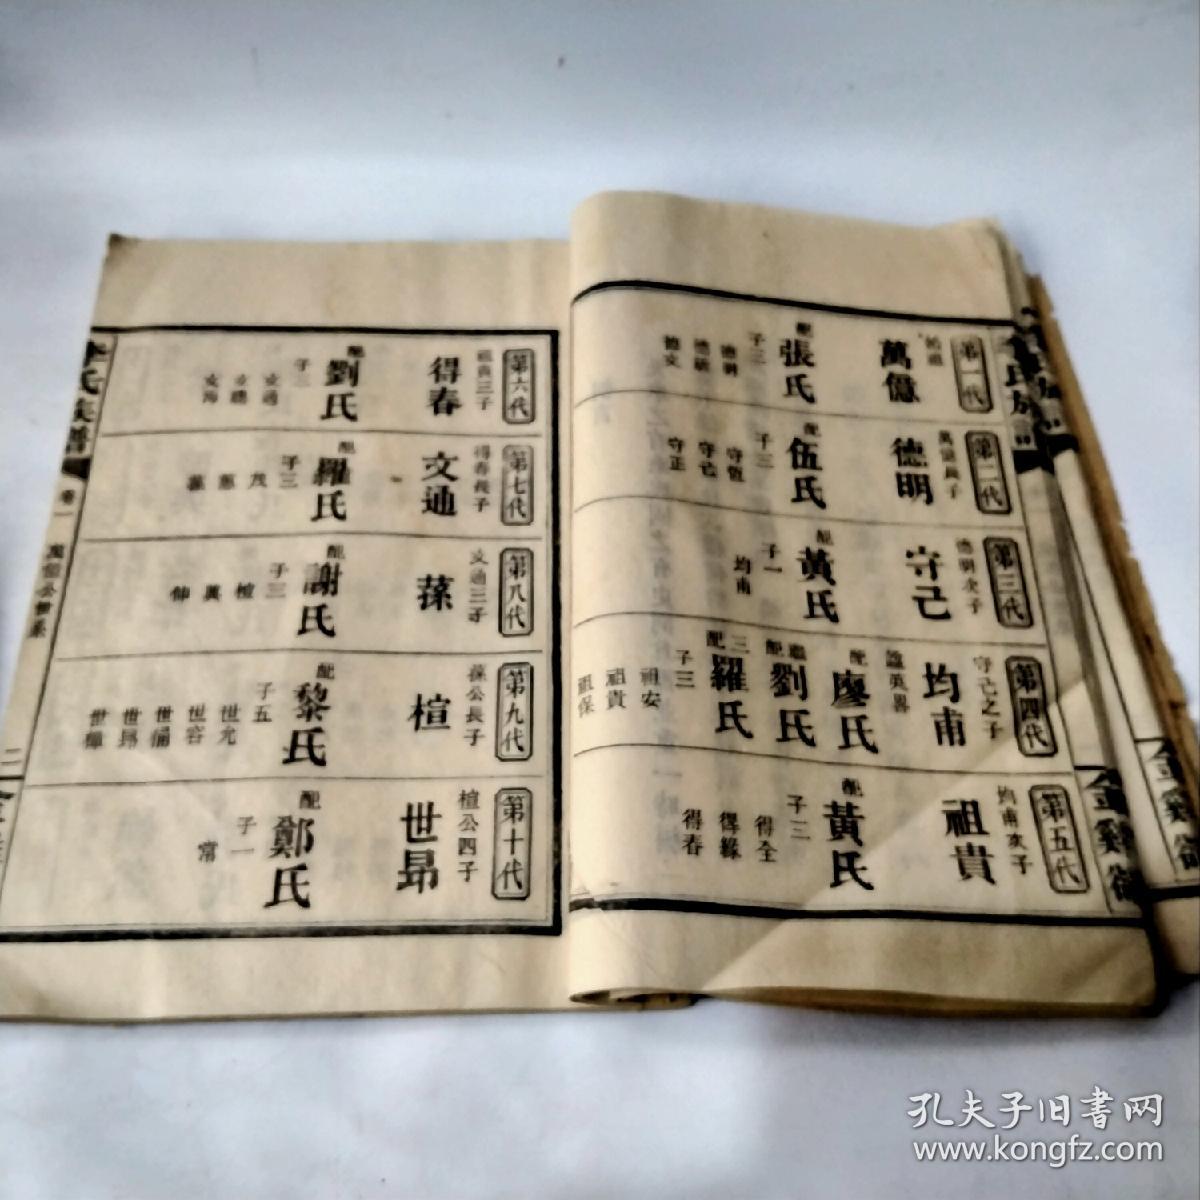 第一代
始祖
萬億
配
張氏
子三
德明
德文
第二代
萬億長子
德明
配
伍氏
子三
守哲
守己
守正
第三代
德明次子
守己
配
黃氏
子一
均甫
第四代
守己之子
均甫
配
廖氏
繼配
劉氏
三配
羅氏
子三
祖安
祖貴
祖保
第五代
均甫次子
祖貴
配
黃氏
子三
得全
得緣
得春
第六代
祖貴三子
得春
配
劉氏
子三
文通
文聰
文海
第七代
得春長子
文通
配
羅氏
子三
茂
蕙
蓀
第八代
文通三子
蓀
配
謝氏
子三
楦
萬
伸
第九代
蓀公長子
楦
配
黎氏
子五
世允
世容
世俑
世昂
世暐
第十代
楦公四子
世昂
配
鄭氏
子一
常
李氏族譜
卷一
萬億公世系
二
孔夫子旧书网
www.kongfz.com